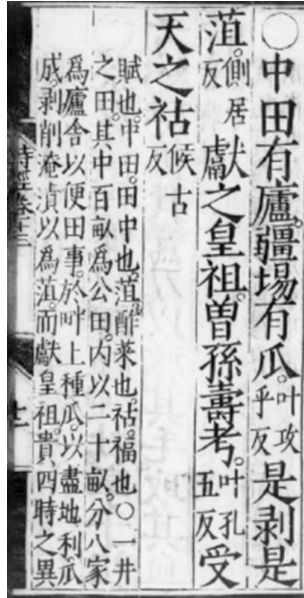 ○中田有廬。疆埸有瓜。叶攻乎反是剥是
菹。側居反獻之皇祖。曾孫壽考。叶孔五反受
天之祜候古反
賦也。中田。田中也。菹酢菜也。祜。福也。○一井
之田。其中百畝爲公田。内以二十畝。分八家
爲廬舍以便田事。於畔上種瓜。以盡地利瓜
成剥削淹漬以爲菹而獻皇祖。貴四時之異
詩經卷十三